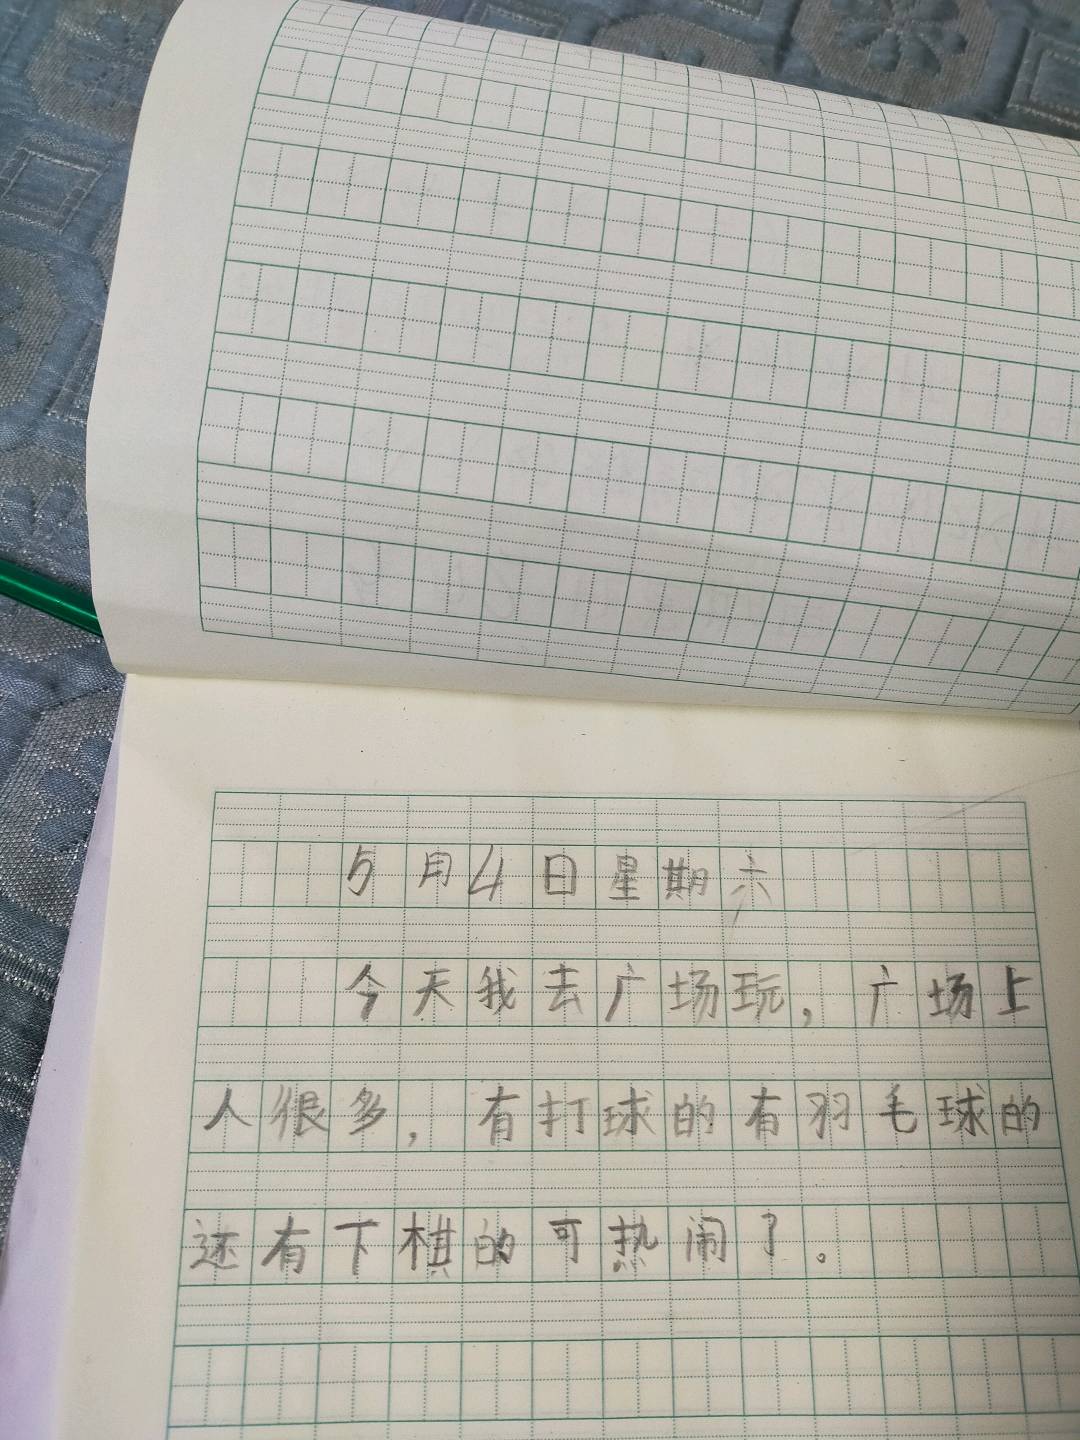 5月4日星期六
今天我去广场玩，广场上
人很多，有打球的有羽毛球的
还有下棋的可热闹了。